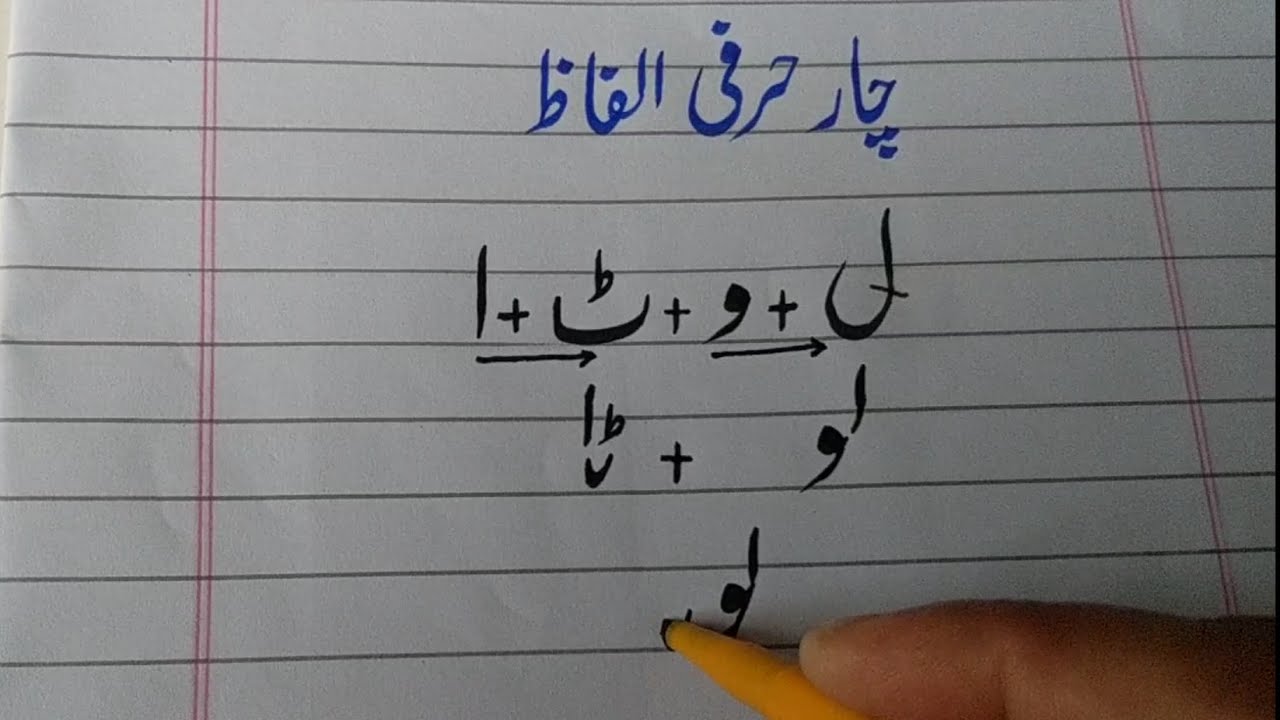 چار حرفی الفاظ
ل + و + ٹ + ا
لو + ٹا
لو